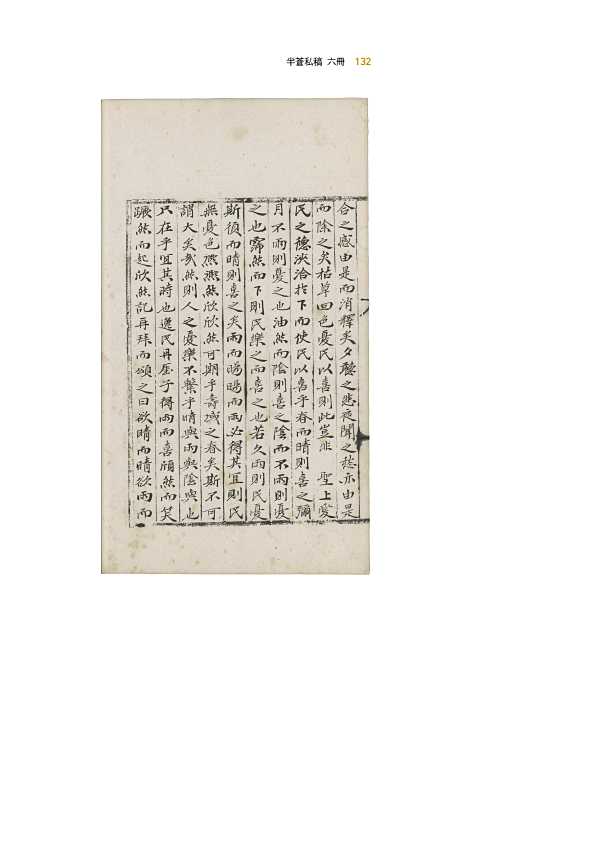 半蒼私稿 六冊 132
合之感由是而消釋矣夕聽之悲夜聞之愁亦由是
而除之矣枯草回色憂民以喜則此豈非 聖上愛
民之德浹洽於下而使民以喜乎春而晴則喜之彌
月不雨則憂之也油然而陰則喜之陰而不雨則憂
之也霈然而下則民樂之而喜之也若久雨則民憂
斯須而晴則喜之矣雨而暘暘而雨必得其宜則民
無憂色熙熙然欣欣然可期乎壽域之春矣斯不可
謂大矣哉然則人之憂樂不繫乎晴與雨與陰與也
只在乎宜其時也逸民再壓子得雨而喜頎然而笑
蹶然而起欣然記再拜而頌之曰欲晴而晴欲雨而